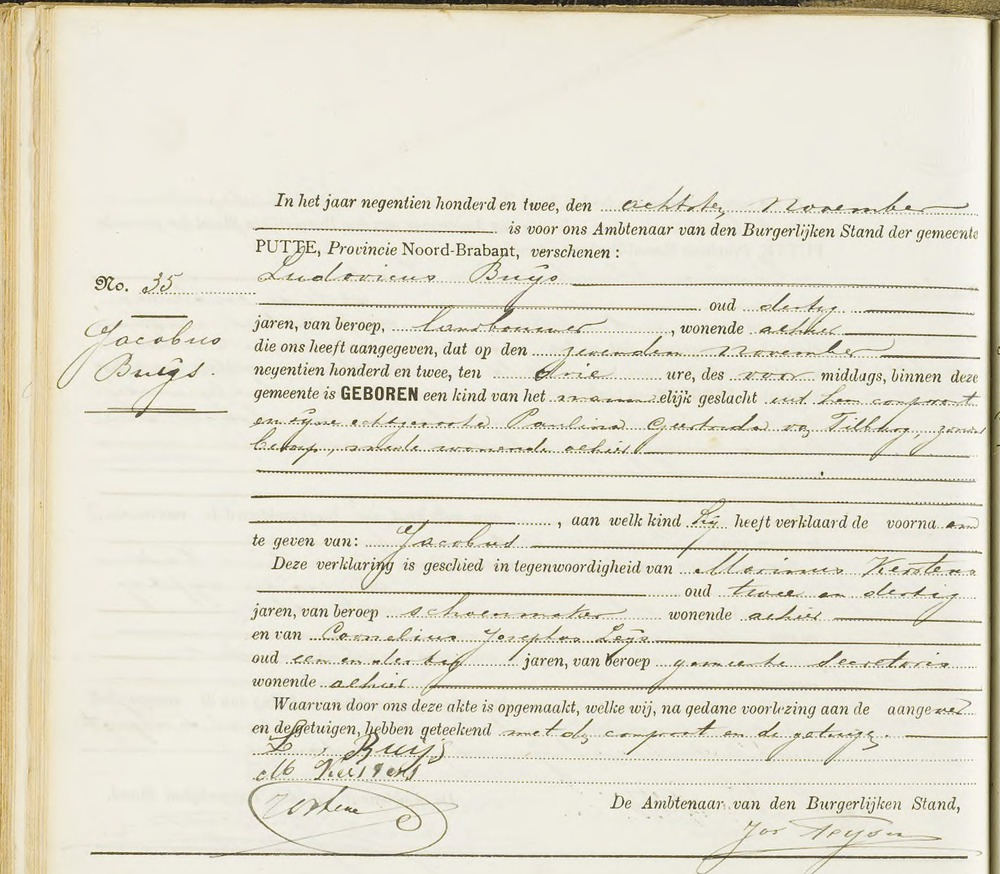 In het jaar negentien honderd en twee, den achtsten November
is voor ons Ambtenaar van den Burgerlijken Stand der gemeente
PUTTE, Provincie Noord-Brabant, verschenen:
No. 35
Ludovicus Buijs
oud dertig
Jacobus
Buijs.
jaren, van beroep, landbouwer, wonende alhier
die ons heeft aangegeven, dat op den zevenden November
negentien honderd en twee, ten drie ure, des voor middags, binnen deze
gemeente is GEBOREN een kind van het mannelijk geslacht uit den comparant
en zijne echtgenoote Paulina van Tilburg, zonder
beroep, mede wonende alhier
, aan welk kind hij heeft verklaard de voorna am
te geven van: Jacobus
Deze verklaring is geschied in tegenwoordigheid van Marinus Kerstens
oud twee en dertig
jaren, van beroep schoenmaker wonende alhier
en van Cornelius Josephus Leijs
oud een en dertig jaren, van beroep gemeente secretaris
wonende alhier
Waarvan door ons deze akte is opgemaakt, welke wij, na gedane voorlezing aan de aangever
en de getuigen, hebben geteekend met den comparant en de getuigen.
L. Buijs
M Kerstens
De Ambtenaar van den Burgerlijken Stand,